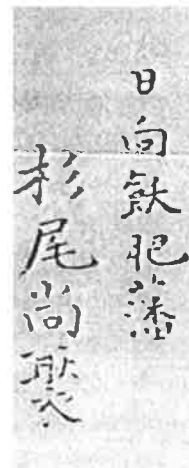 日向飫肥藩
杉尾尚褧